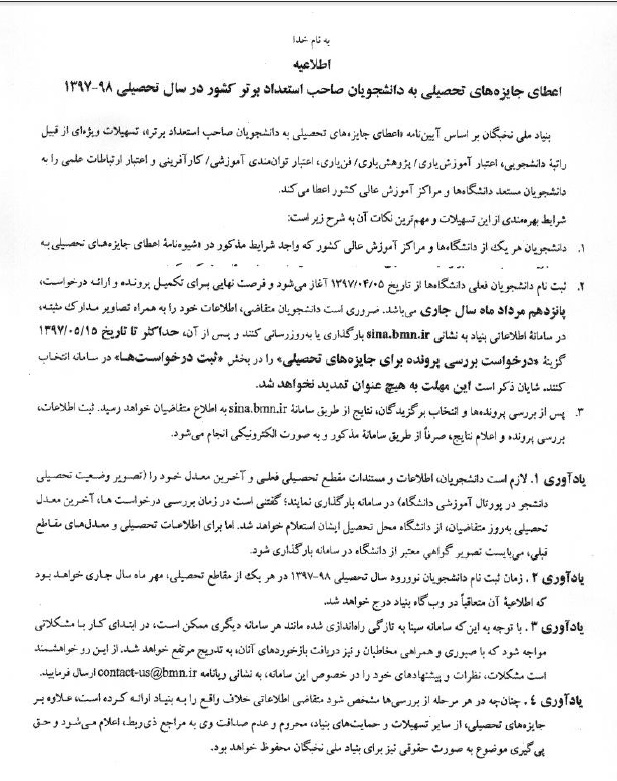 به نام خدا
اطلاعیه
اعطای جایزه‌های تحصیلی به دانشجویان صاحب استعداد برتر کشور در سال تحصیلی ۹۸-۱۳۹۷
بنیاد ملی نخبگان بر اساس آیین‌نامه «اعطای جایزه‌های تحصیلی به دانشجویان صاحب استعداد برتر»، تسهیلات ویژه‌ای از قبیل
راتبهٔ دانشجویی، اعتبار آموزش‌یاری/ پژوهش‌یاری/ فن‌یاری، اعتبار توان‌مندی آموزشی/ کارآفرینی و اعتبار ارتباطات علمی را به
دانشجویان مستعد دانشگاه‌ها و مراکز آموزش عالی کشور اعطا می‌کند.
شرایط بهره‌مندی از این تسهیلات و مهم‌ترین نکات آن به شرح زیر است:
۱. دانشجویان هر یک از دانشگاه‌ها و مراکز آموزش عالی کشور که واجد شرایط مذکور در «شیوه‌نامهٔ اعطای جایزه‌های تحصیلی به
۲. ثبت نام دانشجویان فعلی دانشگاه‌ها از تاریخ ۱۳۹۷/۰۴/۰۵ آغاز می‌شود و فرصت نهایی برای تکمیل پرونده و ارائه درخواست،
پانزدهم مرداد ماه سال جاری می‌باشد. ضروری است دانشجویان متقاضی، اطلاعات خود را به همراه تصاویر مدارک مثبته،
در سامانهٔ اطلاعاتی بنیاد به نشانی sina.bmn.ir بارگذاری یا به‌روزرسانی کنند و پس از آن، حداکثر تا تاریخ ۱۳۹۷/۰۵/۱۵
گزینهٔ «درخواست بررسی پرونده برای جایزه‌های تحصیلی» را در بخش «ثبت درخواست‌ها» در سامانه انتخاب
کنند. شایان ذکر است این مهلت به هیچ عنوان تمدید نخواهد شد.
۳. پس از بررسی پرونده‌ها و انتخاب برگزیدگان، نتایج از طریق سامانهٔ sina.bmn.ir به اطلاع متقاضیان خواهد رسید. ثبت اطلاعات،
بررسی پرونده و اعلام نتایج، صرفاً از طریق سامانهٔ مذکور و به صورت الکترونیکی انجام می‌شود.
یادآوری ۱. لازم است دانشجویان، اطلاعات و مستندات مقطع تحصیلی فعلی و آخرین معدل خود را (تصویر وضعیت تحصیلی
دانشجو در پورتال آموزشی دانشگاه) در سامانه بارگذاری نمایند؛ گفتنی است در زمان بررسی درخواست ها، آخرین معدل
تحصیلی به‌روز متقاضیان، از دانشگاه محل تحصیل ایشان استعلام خواهد شد. اما برای اطلاعات تحصیلی و معدل‌های مقاطع
قبلی، می‌بایست تصویر گواهی معتبر از دانشگاه در سامانه بارگذاری شود.
یادآوری ۲. زمان ثبت نام دانشجویان نوورود سال تحصیلی ۹۸-۱۳۹۷ در هر یک از مقاطع تحصیلی، مهر ماه سال جاری خواهد بود
که اطلاعیهٔ آن متعاقباً در وب‌گاه بنیاد درج خواهد شد.
یادآوری ۳. با توجه به این که سامانه سینا به تازگی راه‌اندازی شده مانند هر سامانه دیگری ممکن است، در ابتدای کار با مشکلاتی
مواجه شود که با صبوری و همراهی مخاطبان و نیز دریافت بازخوردهای آنان، به تدریج مرتفع خواهد شد. از این رو خواهشمند
است مشکلات، نظرات و پیشنهادهای خود را در خصوص این سامانه، به نشانی رایانامه contact-us@bmn.ir ارسال فرمایید.
یادآوری ۴. چنان‌چه در هر مرحله از بررسی‌ها مشخص شود متقاضی اطلاعاتی خلاف واقع را به بنیاد ارائه کرده است، علاوه بر
جایزه‌های تحصیلی، از سایر تسهیلات و حمایت‌های بنیاد، محروم و عدم صداقت وی به مراجع ذی‌ربط، اعلام می‌شود و حق
پی‌گیری موضوع به صورت حقوقی نیز برای بنیاد ملی نخبگان محفوظ خواهد بود.